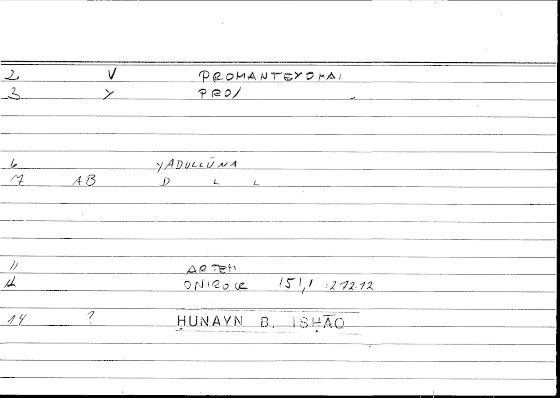 2 V PROMANTEYOMAI
3 Y PRO/
6 YADULLŪNA
7 AB D L L
11 ARTEM
12 ONIROCR 151,1 :212.12
14 ? ḤUNAYN B. ISḤĀQ